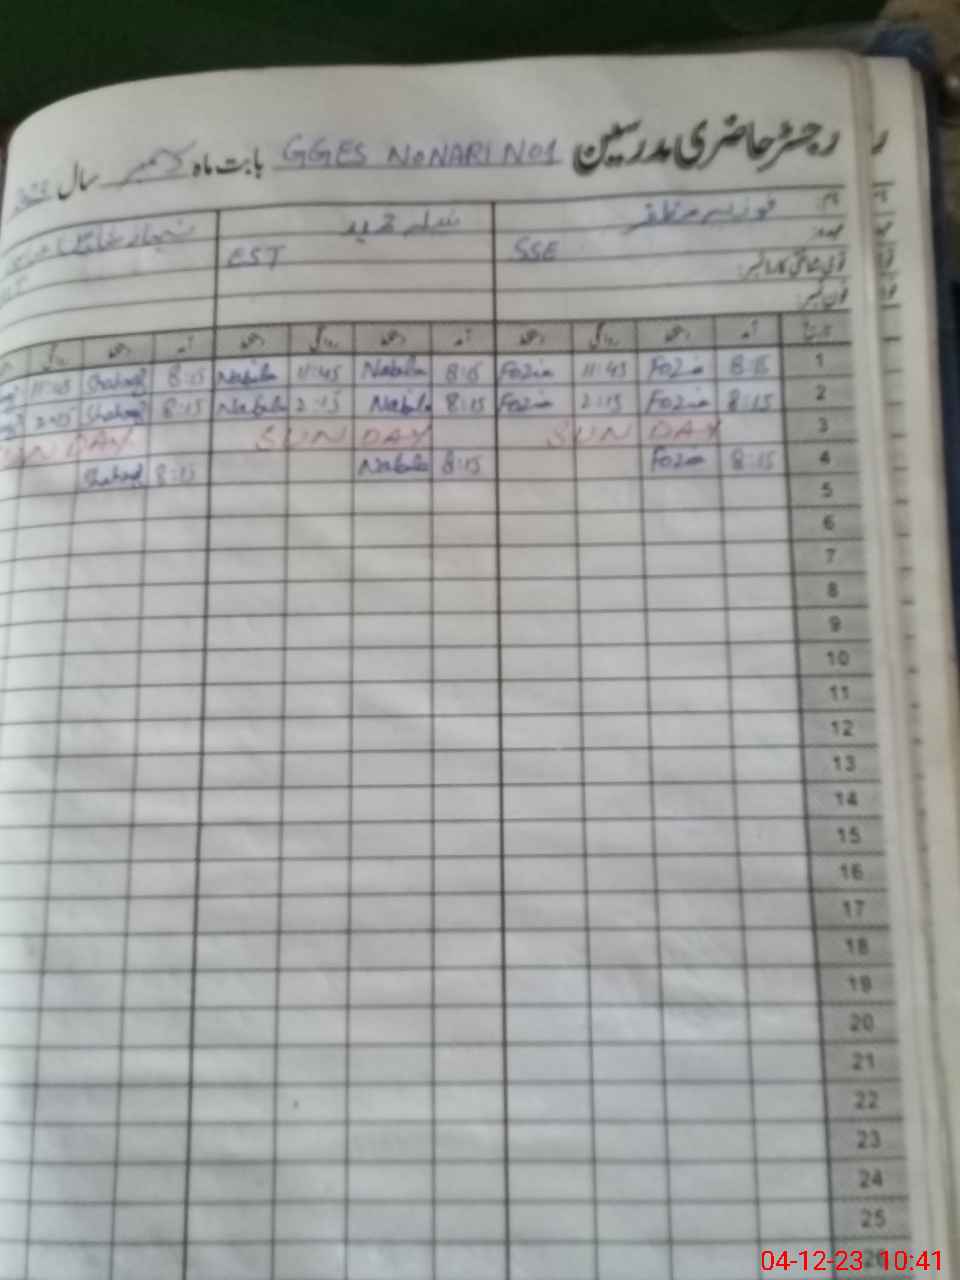 رجسٹر حاضری مدرسین GGES NONARI NO1 بابت ماہ دسمبر سال
نام:
عہدہ:
SSE EST
قومی شناختی کارڈ نمبر:
فون نمبر:
تاریخ آمد دستخط روانگی دستخط آمد دستخط روانگی دستخط آمد دستخط روانگی
1 8:15 Fozia 11:45 Fozia 8:15 Nabila 11:45 Nabila 8:15 11:45
2 8:15 Fozia 2:15 Fozia 8:15 Nabila 2:15 Nabila 8:15 2:15
3 SUNDAY SUNDAY SUNDAY
4 8:15 Fozia 8:15 Nabila 8:15
5
6
7
8
9
10
11
12
13
14
15
16
17
18
19
20
21
22
23
24
25
26
04-12-23 10:41